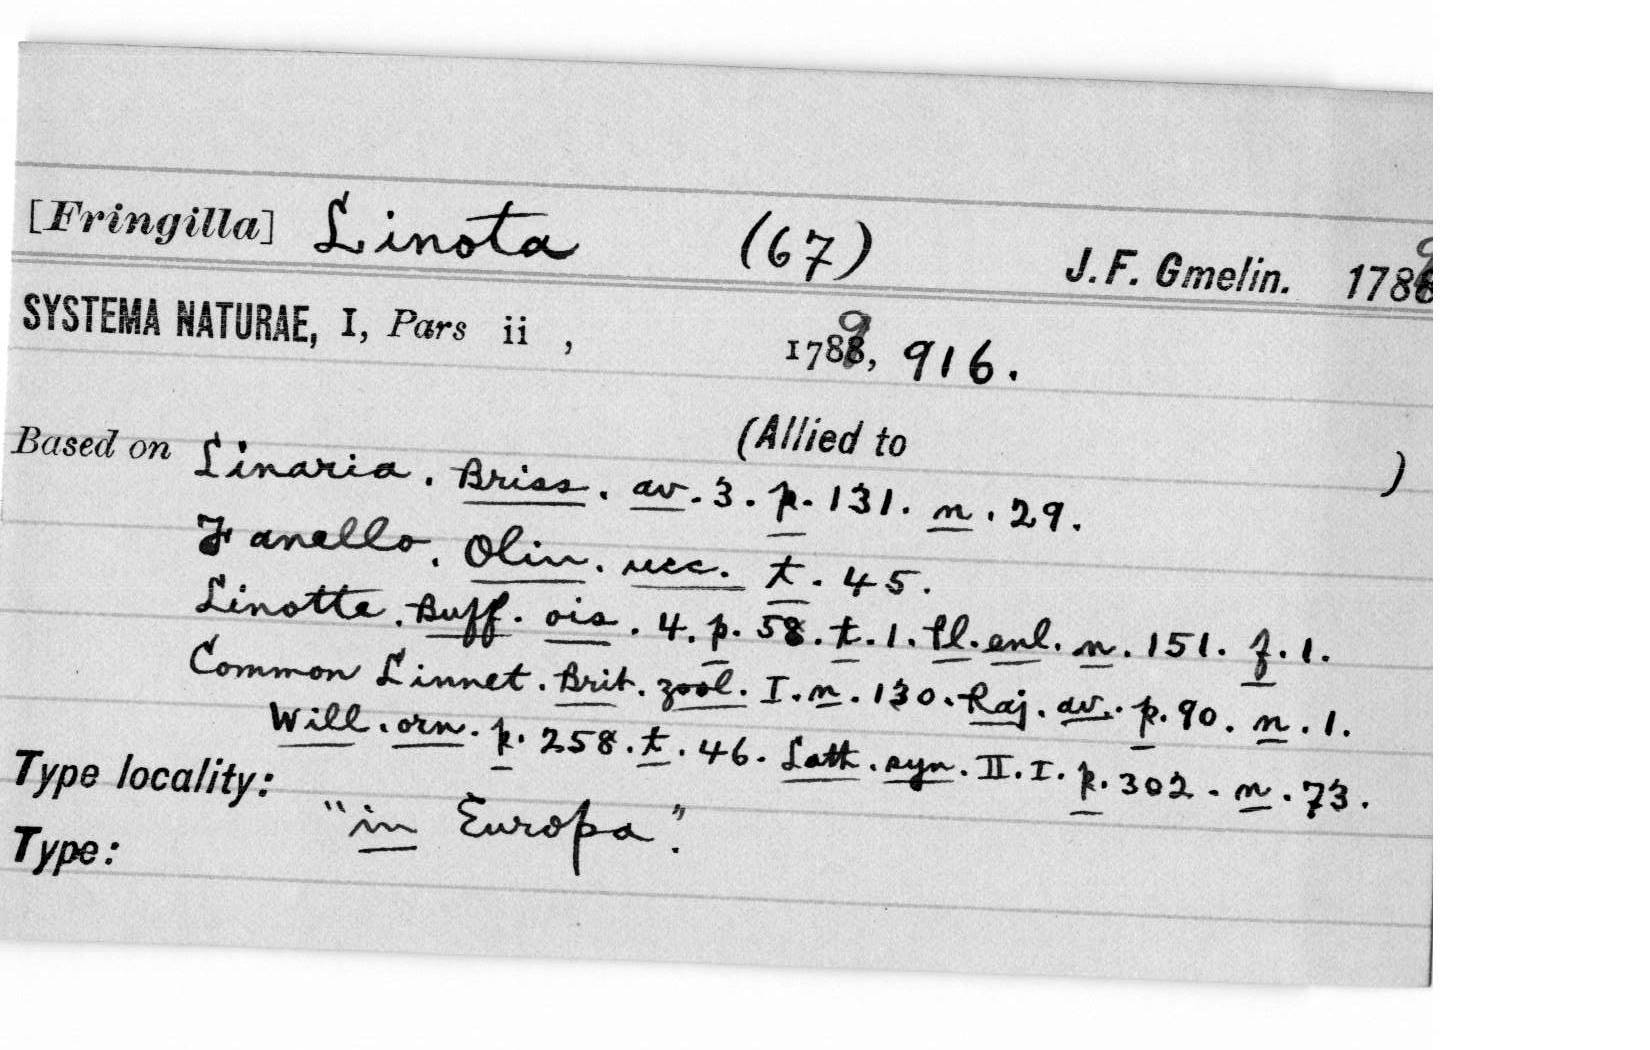 [Fringilla] Linota (67) J. F. Gmelin. 1789
SYSTEMA NATURAE, I, Pars ii , 1789, 916.
Based on (Allied to )
Linaria. Briss. av. 3. p. 131. n. 29.
Fanello. Olin. ucc. t. 45.
Linotte. Buff. ois. 4. p. 58. t. 1. Pl. enl. n. 151. f. 1.
Common Linnet. Brit. zool. I. n. 130. Raj. av. p. 90. n. 1.
Will. orn. p. 258. t. 46. Lath. syn. II. I. p. 302. n. 73.
Type locality: "in Europa".
Type: